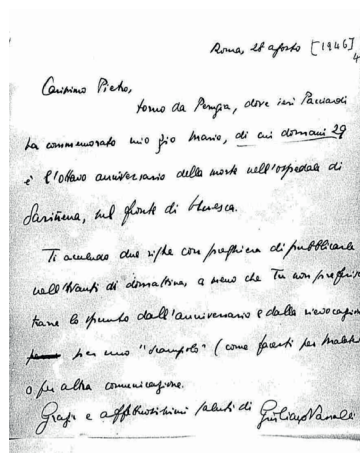 Roma, 28 agosto [1946]
4
Carissimo Pietro,
torno da Perugia, dove ieri Pacciardi
ha commemorato mio zio Mario, di cui domani 29
è l'ottavo anniversario della morte nell'ospedale di
Sariñena, sul fronte di Huesca.
Ti accludo due righe con preghiera di pubblicarle
nell'Avanti di domattina, a meno che Tu non preferisc
trarre lo spunto dall'anniversario e dalla rievocazion
per uno "stampolo" (come facesti per
o per altra comunicazione.
Grazie e affettuosissimi saluti di Giuliano Vassalli